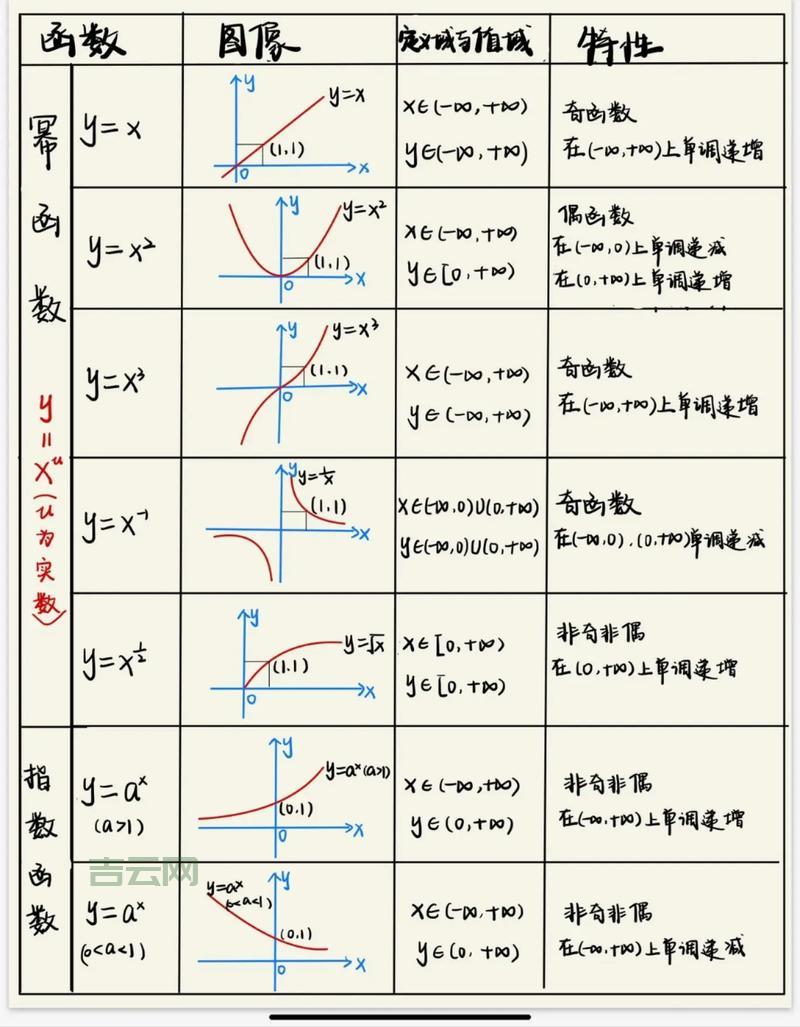 函数 图像 定义域与值域 特性
幂函数
y=xᵘ(u为实数)
y=x
y
y=x
(1,1)
0
x
x∈(-∞,+∞)
y∈(-∞,+∞)
奇函数
在(-∞,+∞)上单调递增
y=x²
y
y=x²
(1,1)
0
x
x∈(-∞,+∞)
y∈[0,+∞)
偶函数
在(-∞,0)上单调递减
在(0,+∞)上单调递增
y=x³
y
y=x³
(1,1)
0
x
x∈(-∞,+∞)
y∈(-∞,+∞)
奇函数
在(-∞,+∞)上单调递增
y=x⁻¹
y
y=1/x
(1,1)
x
x∈(-∞,0)∪(0,+∞)
y∈(-∞,0)∪(0,+∞)
奇函数
在(-∞,0),(0,+∞)单调递减
y=x^½
y
y=√x
(1,1)
0
x
x∈[0,+∞)
y∈[0,+∞)
非奇非偶
在(0,+∞)上单调递增
指数函数
y=aˣ
(a>1)
y
y=aˣ(a>1)
(0,1)
0
x
x∈(-∞,+∞)
y∈(0,+∞)
非奇非偶
在(-∞,+∞)上单调递增
吉云网
y=aˣ
(0<a<1)
y
y=aˣ
(0<a<1)
(0,1)
0
x
x∈(-∞,+∞)
y∈(0,+∞)
非奇非偶
在(-∞,+∞)上单调递减